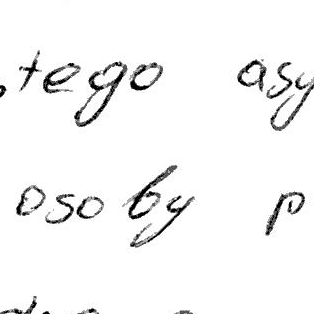 tego asy
osoby p